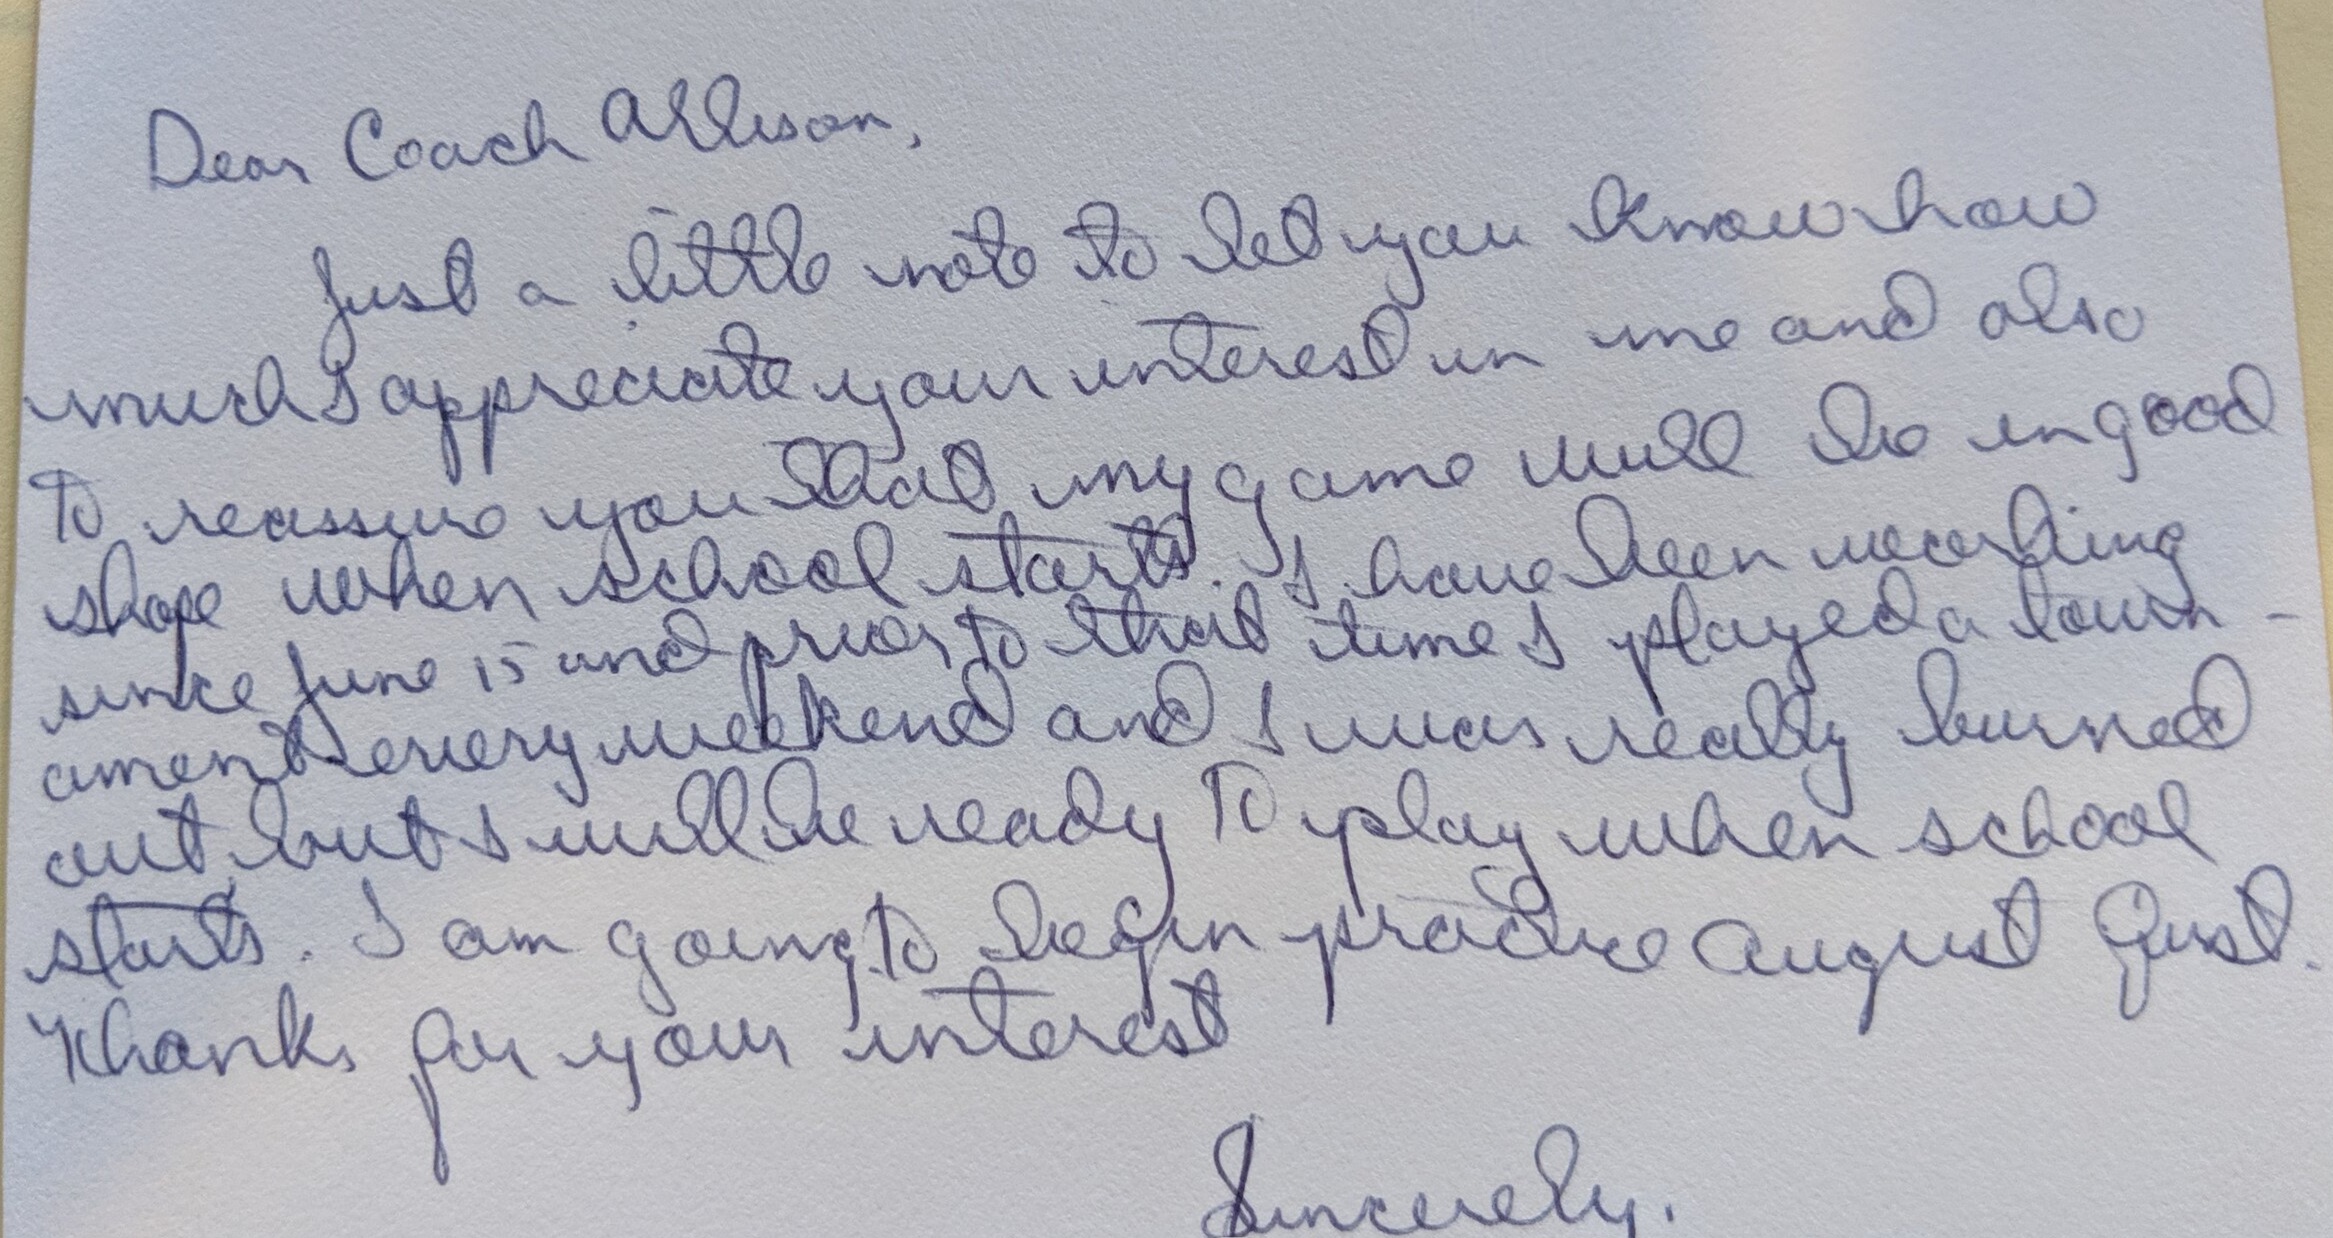 Dear Coach Allison,
Just a little note to let you know how
much I appreciate your interest in me and also
to reassure you that my game will be in good
shape when school starts. I have been working
since June 15 and prior to that time I played a tourn-
ament every weekend and I was really burned
out but I will be ready to play when school
starts. I am going to begin practice August first.
Thanks for your interest
Sincerely,